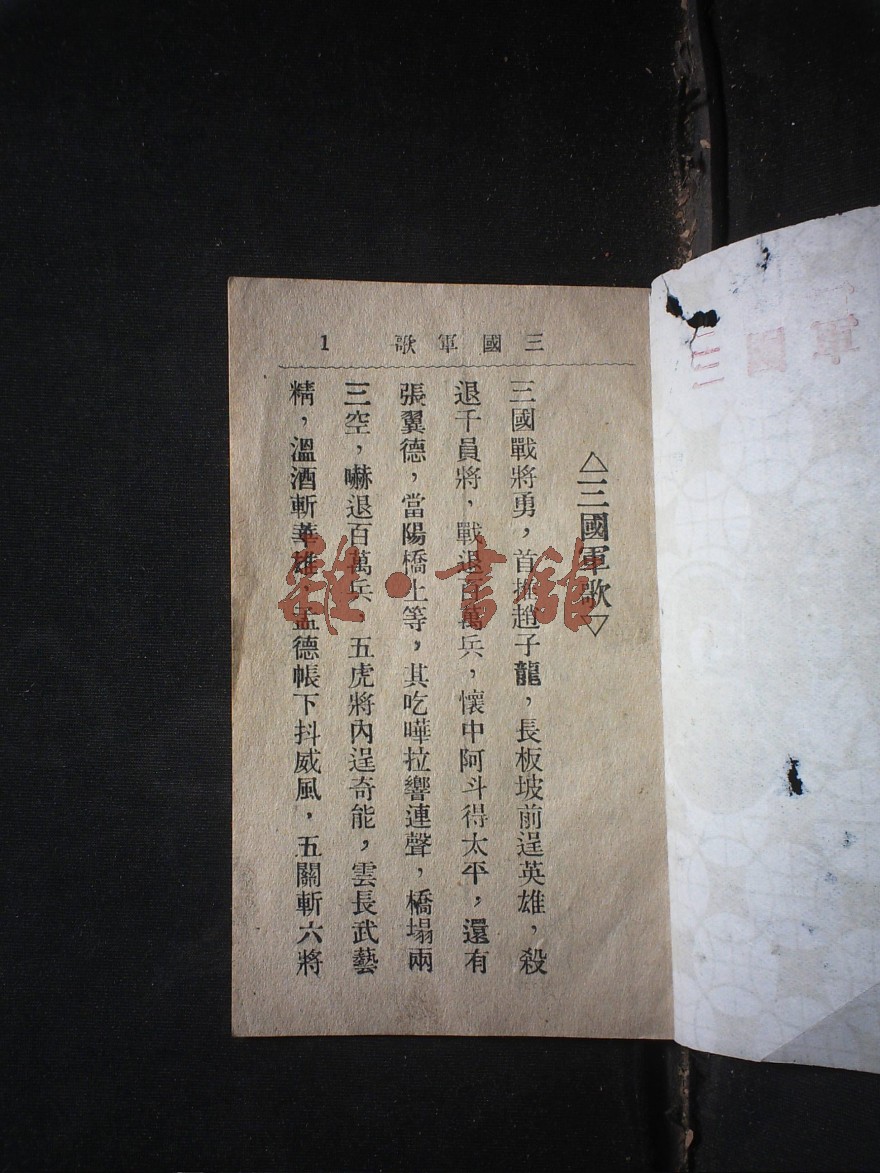 三國軍歌 1
△三國軍歌▽
三國戰將勇，首推趙子龍，長板坡前逞英雄，殺
退千員將，戰退百萬兵，懷中阿斗得太平，還有
張翼德，當陽橋上等，其吃嘩拉響連聲，橋塌兩
三空，嚇退百萬兵，五虎將內逞奇能，雲長武藝
精，溫酒斬華雄，孟德帳下抖威風，五關斬六將
雜·書館
三國軍